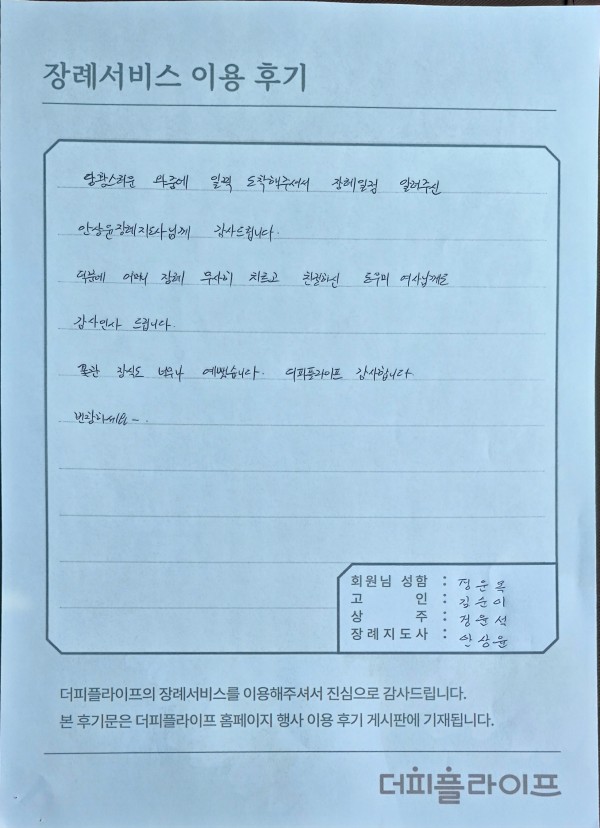 장례서비스 이용 후기
당황스러운 와중에 일찍 도착해주셔서 장례일정 알려주신
안상윤장례지도사님께 감사드립니다.
덕분에 어머니 장례 무사히 치르고 친절하신 도우미 여사님께도
감사인사 드립니다.
꽃관 장식도 너무나 예뻤습니다. 더피플라이프 감사합니다.
번창하세요~.
회원님 성함 : 정운목
고 인 : 김순이
상 주 : 정운석
장례지도사 : 안상윤
더피플라이프의 장례서비스를 이용해주셔서 진심으로 감사드립니다.
본 후기문은 더피플라이프 홈페이지 행사 이용 후기 게시판에 기재됩니다.
더피플라이프